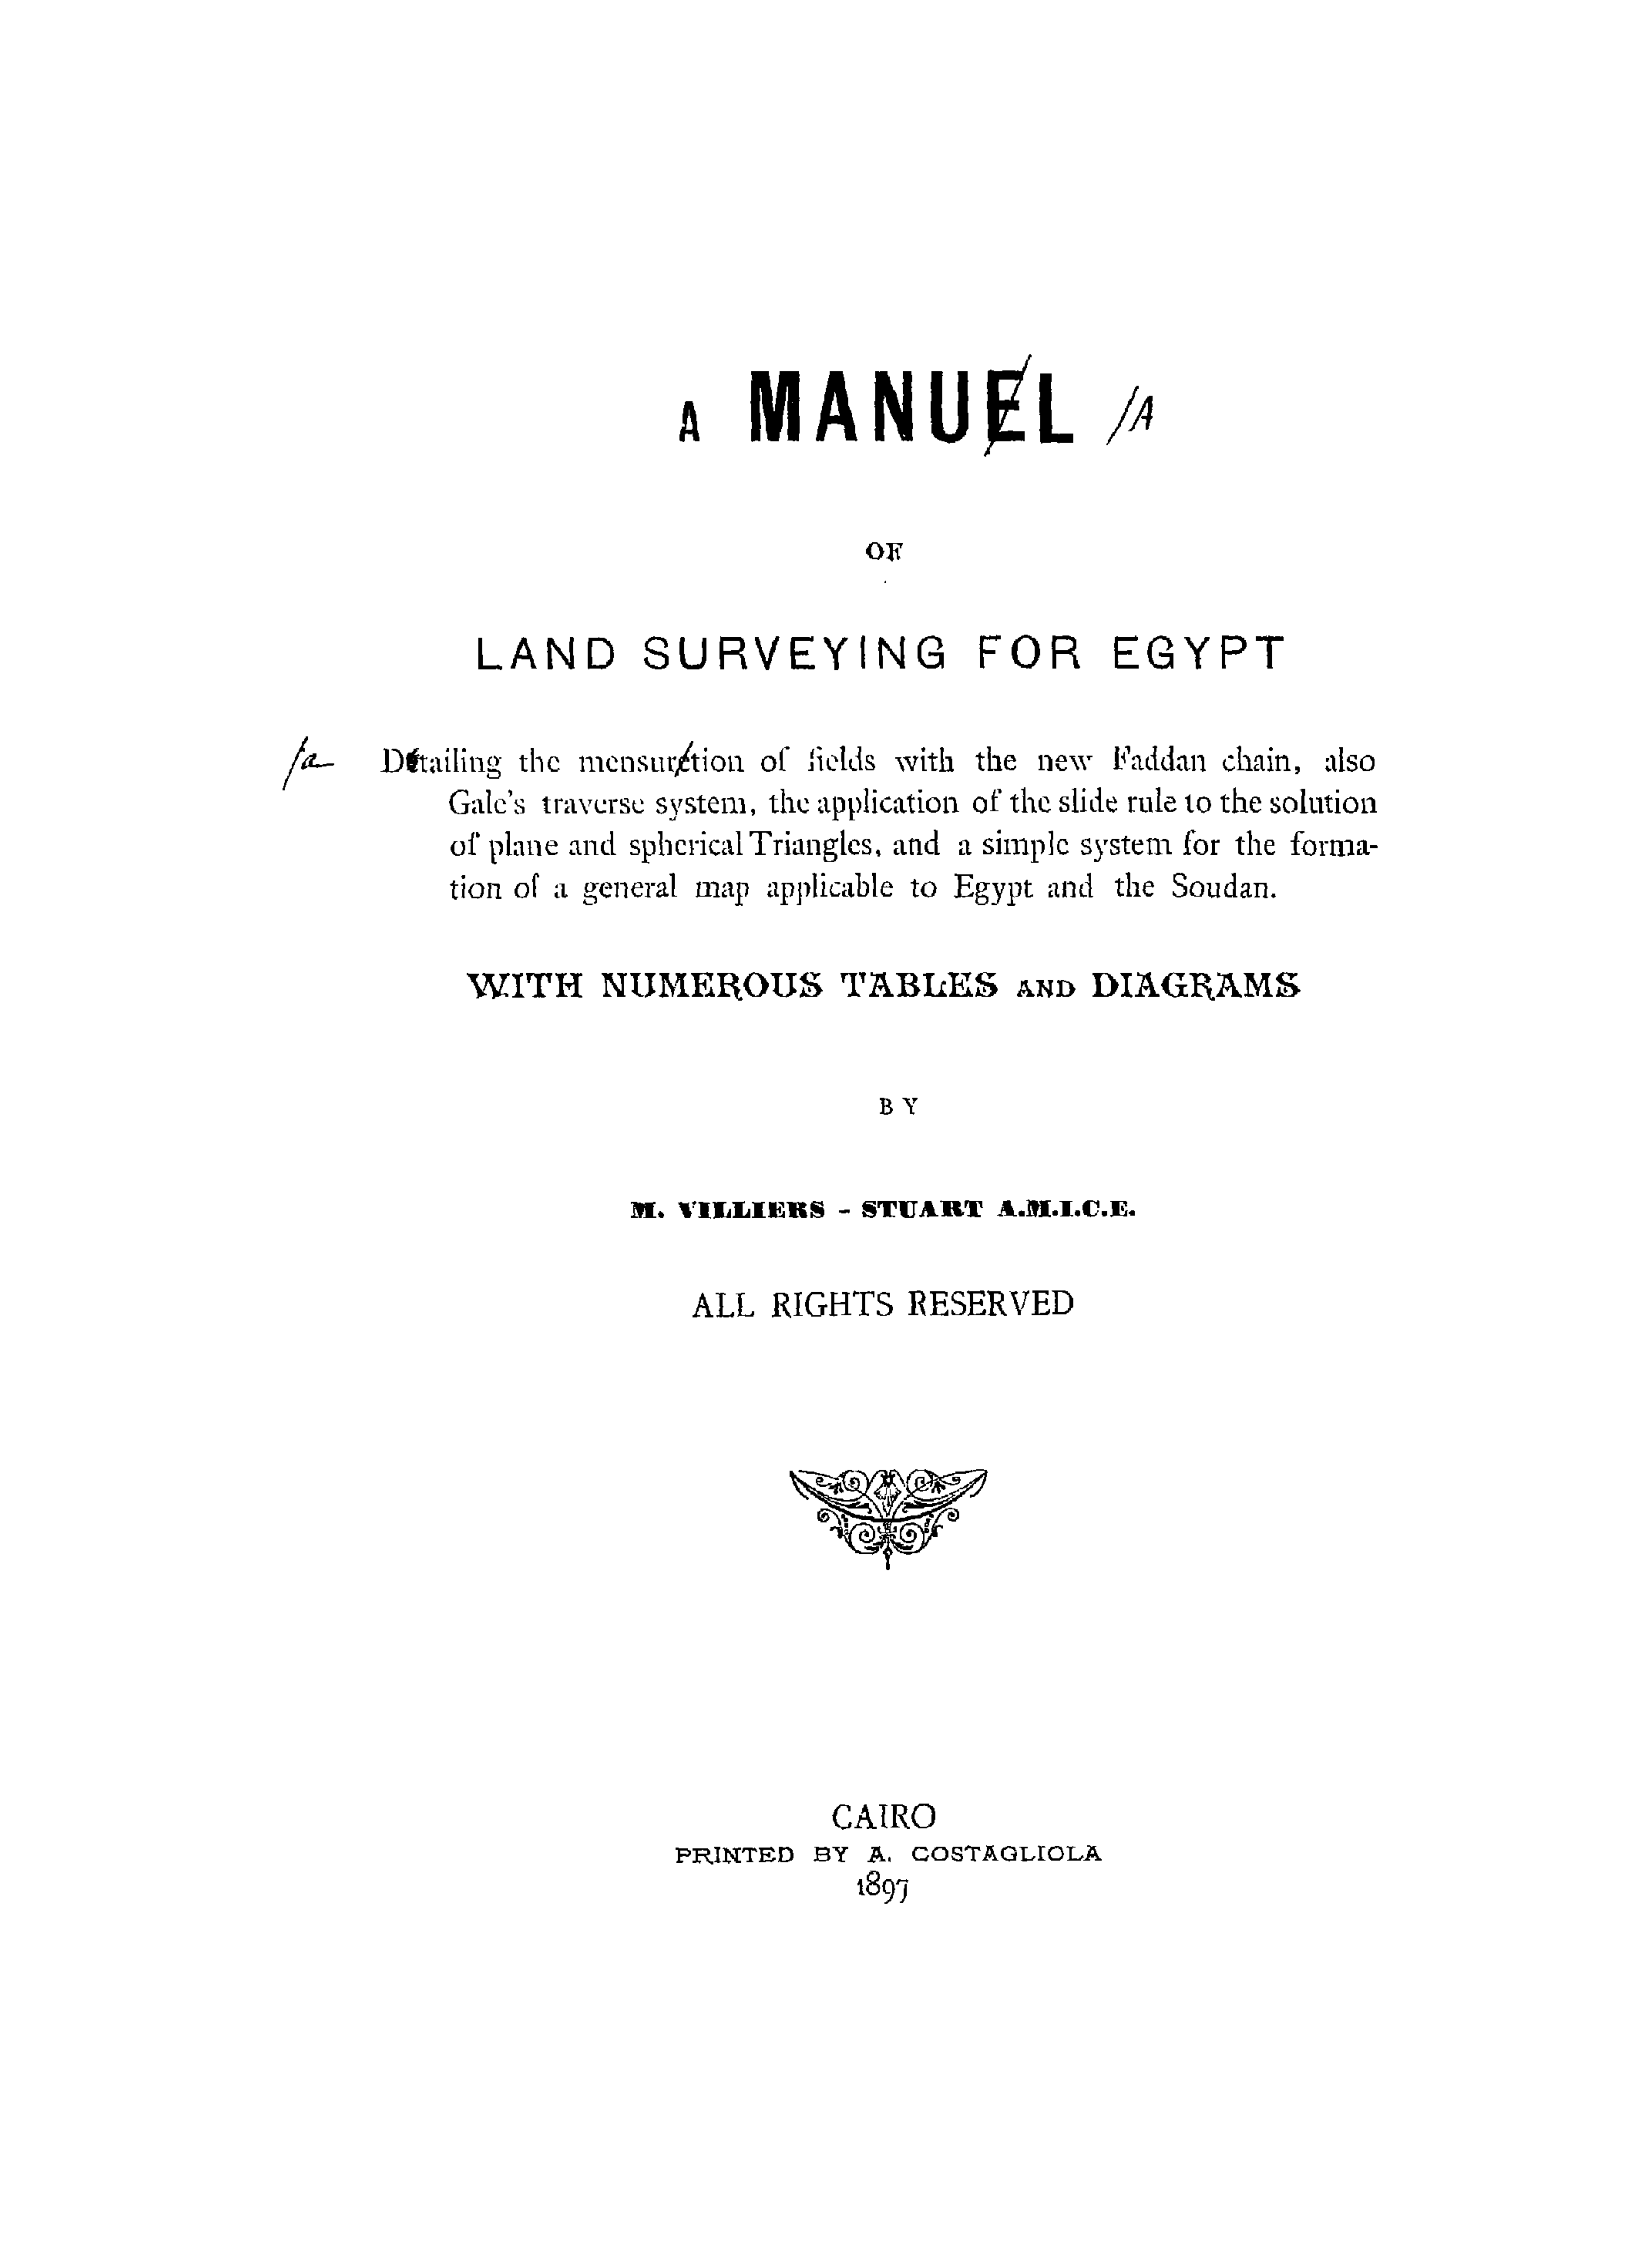 A MANUEL /A
OF
LAND SURVEYING FOR EGYPT
/a Detailing the mensuretion of fields with the new Faddan chain, also
Gale's traverse system, the application of the slide rule to the solution
of plane and spherical Triangles, and a simple system for the forma-
tion of a general map applicable to Egypt and the Soudan.
WITH NUMEROUS TABLES AND DIAGRAMS
BY
M. VILLIERS - STUART A.M.I.C.E.
ALL RIGHTS RESERVED
CAIRO
PRINTED BY A. COSTAGLIOLA
1897